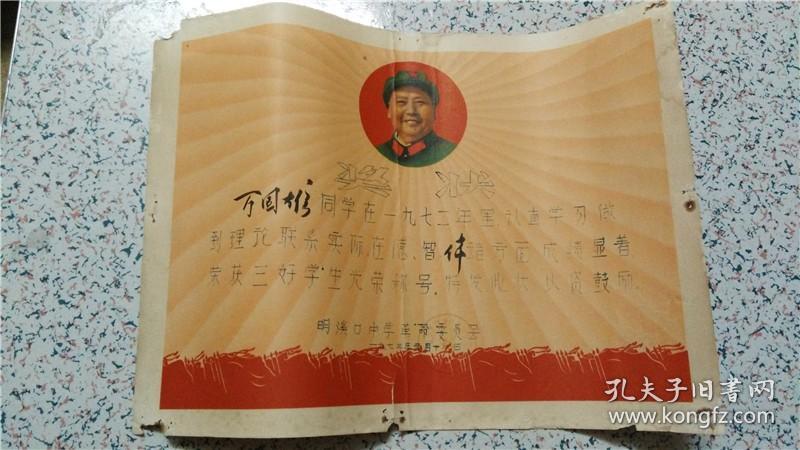 奖 状
万国雄同学在一九七二年里,认真学习做
到理论联系实际在德、智体诸方面成绩显著
荣获三好学生光荣称号,特发此状,以资鼓励。
明溪口中学革命委员会
孔夫子旧书网
www.kongfz.com